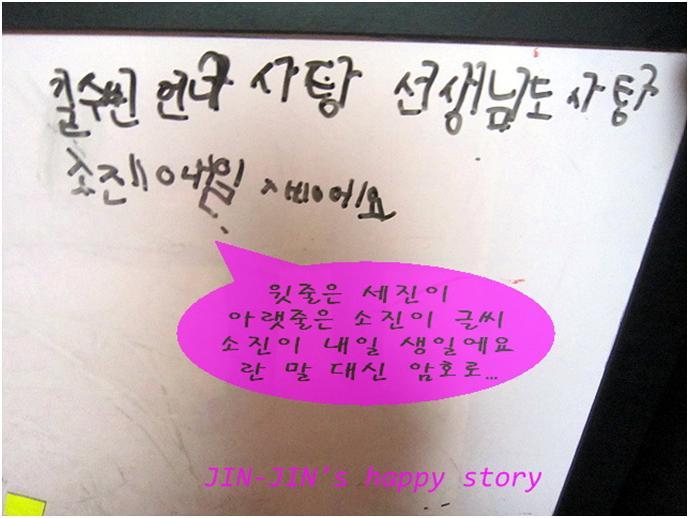 길수빈 언니 사탕 선생님도 사탕
소진 내일
윗줄은 세진이
아랫줄은 소진이 글씨
소진이 내일 생일에요
란 말 대신 암호로...
JIN-JIN's happy story